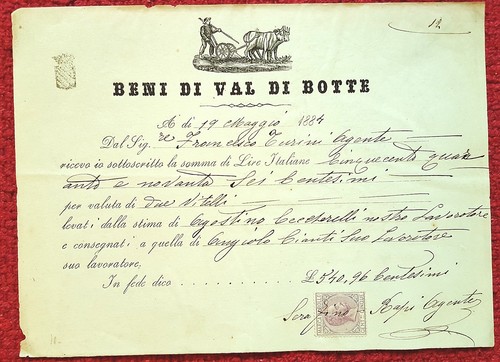 12
BENI DI VAL DI BOTTE
A dì 19 Maggio 1884
Dal Sig.re Francesco Turini Agente
ricevo io sottoscritto la somma di Lire Italiane Cinquecento quar
anto e novanta Sei Centesimi
per valuta di due Vitelli
levati dalla stima di Agostino Ceccarelli nostro Lavoratore
e consegnati a quella di Angiolo Cianti Suo Lavoratore
suo lavoratore,
In fede dico . . . . . . . . . . £ 540,96 Centesimi
Serafino Agente